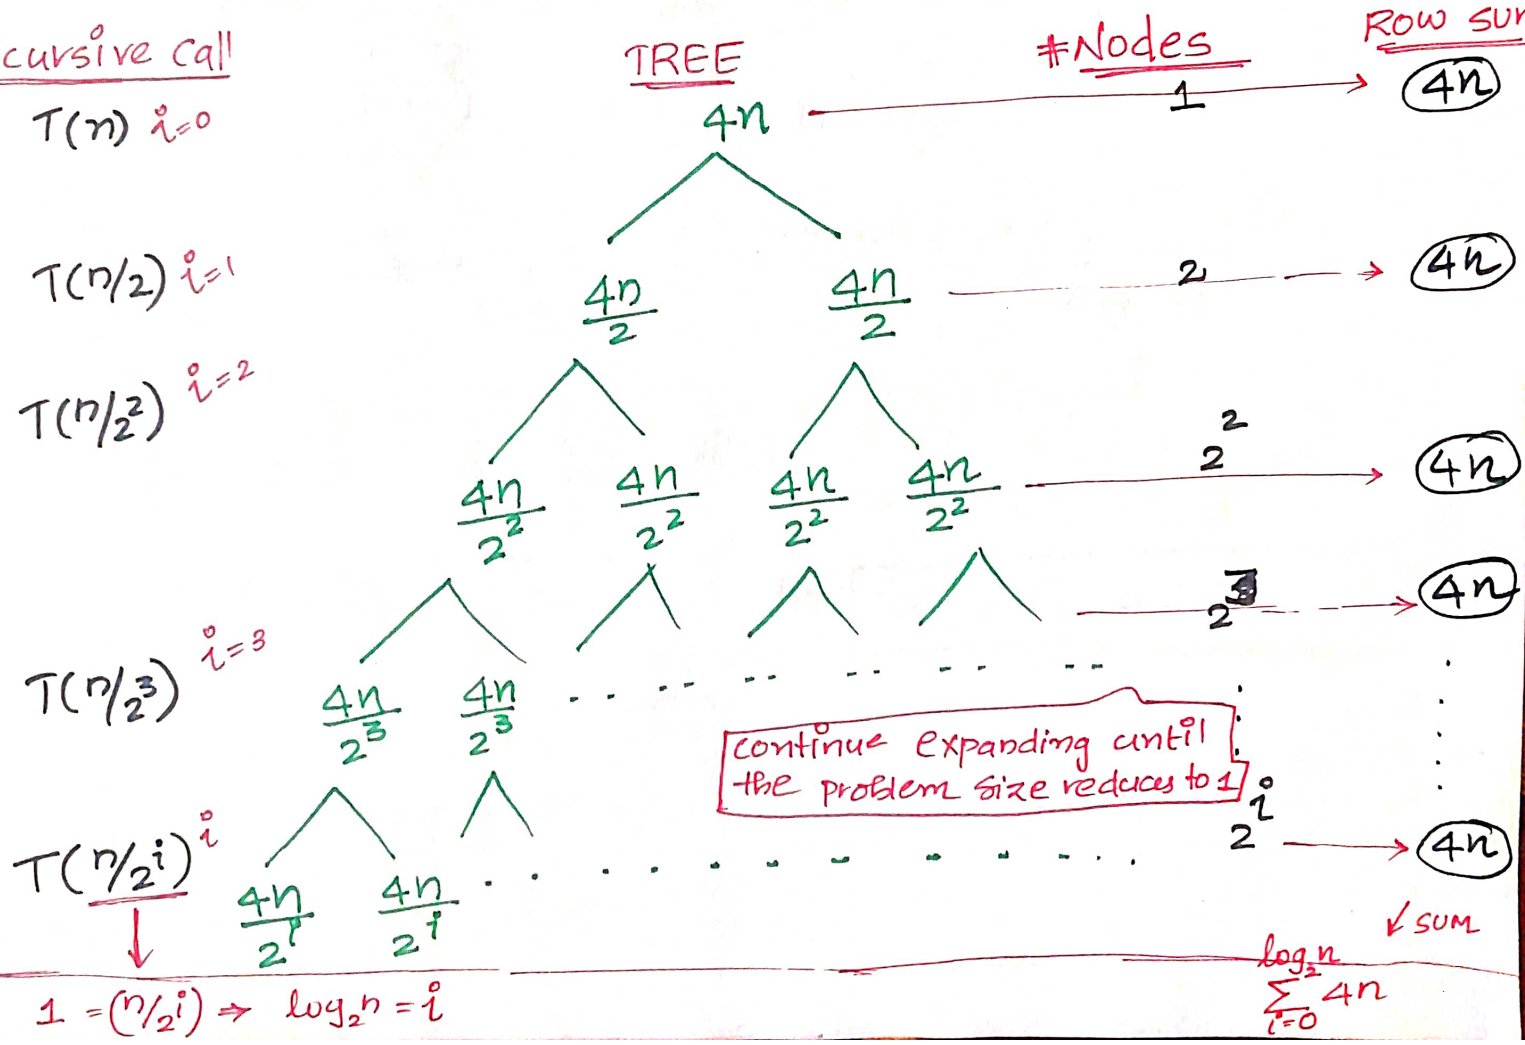 cursive call TREE #Nodes ROW SUM
T(n) i=0 4n 1 4n
T(n/2) i=1 4n/2 4n/2 2 4n
T(n/2²) i=2 4n/2² 4n/2² 4n/2² 4n/2² 2² 4n
2³ 4n
T(n/2³) i=3 4n/2³ 4n/2³
continue expanding until
the problem size reduces to 1
T(n/2ⁱ) i 4n/2ⁱ 4n/2ⁱ 2ⁱ 4n
SUM
1 = (n/2ⁱ) ⇒ log₂n = i ∑_{i=0}^{log₂n} 4n